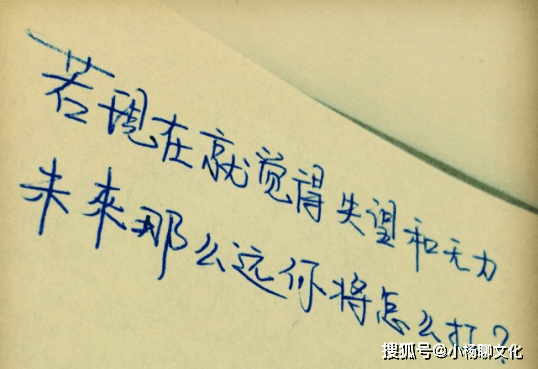 若现在就觉得失望和无力
未来那么远你将怎么打?
搜狐号@小杨聊文化